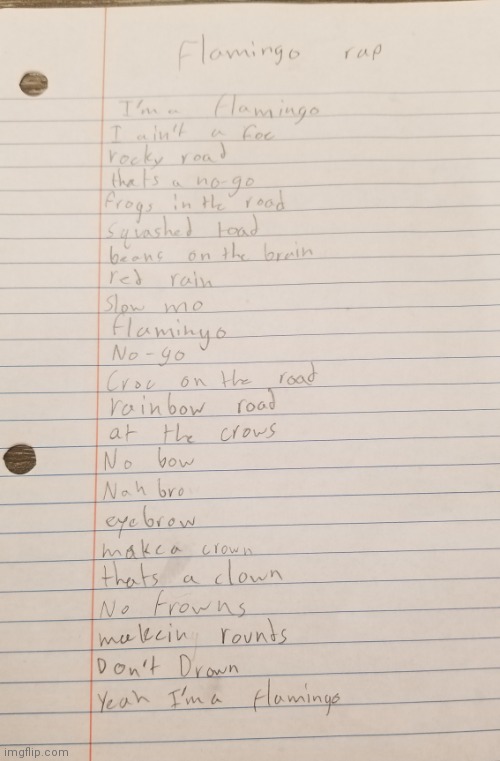 Flamingo rap
I'm a flamingo
I ain't a foe
rocky road
that's a no-go
frogs in the road
squashed toad
beans on the brain
red rain
Slow mo
flamingo
No-go
Croc on the road
rainbow road
at the crows
No bow
Nah bro
eyebrow
make a crown
thats a clown
No frowns
makein rounds
Don't Drown
Yeah I'm a flamingo
imgflip.com